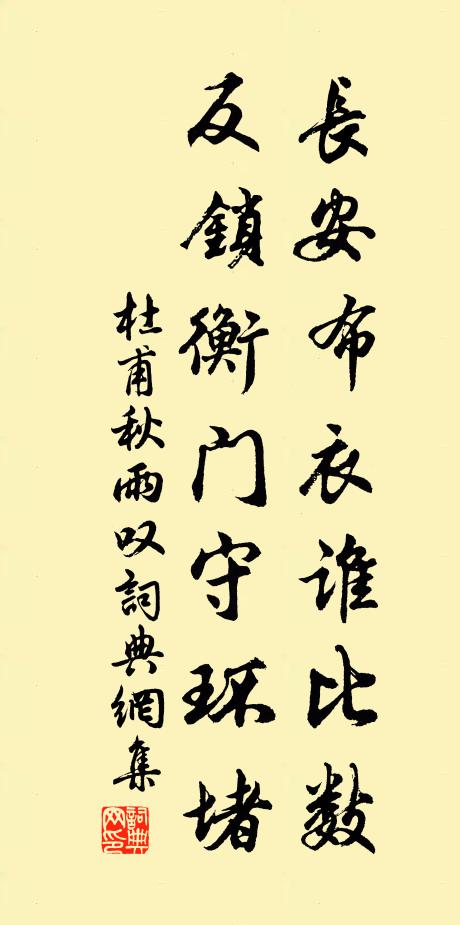 長安布衣谁比数
反鎖衡門守环堵
杜甫秋雨叹詞典網集
詞典网印